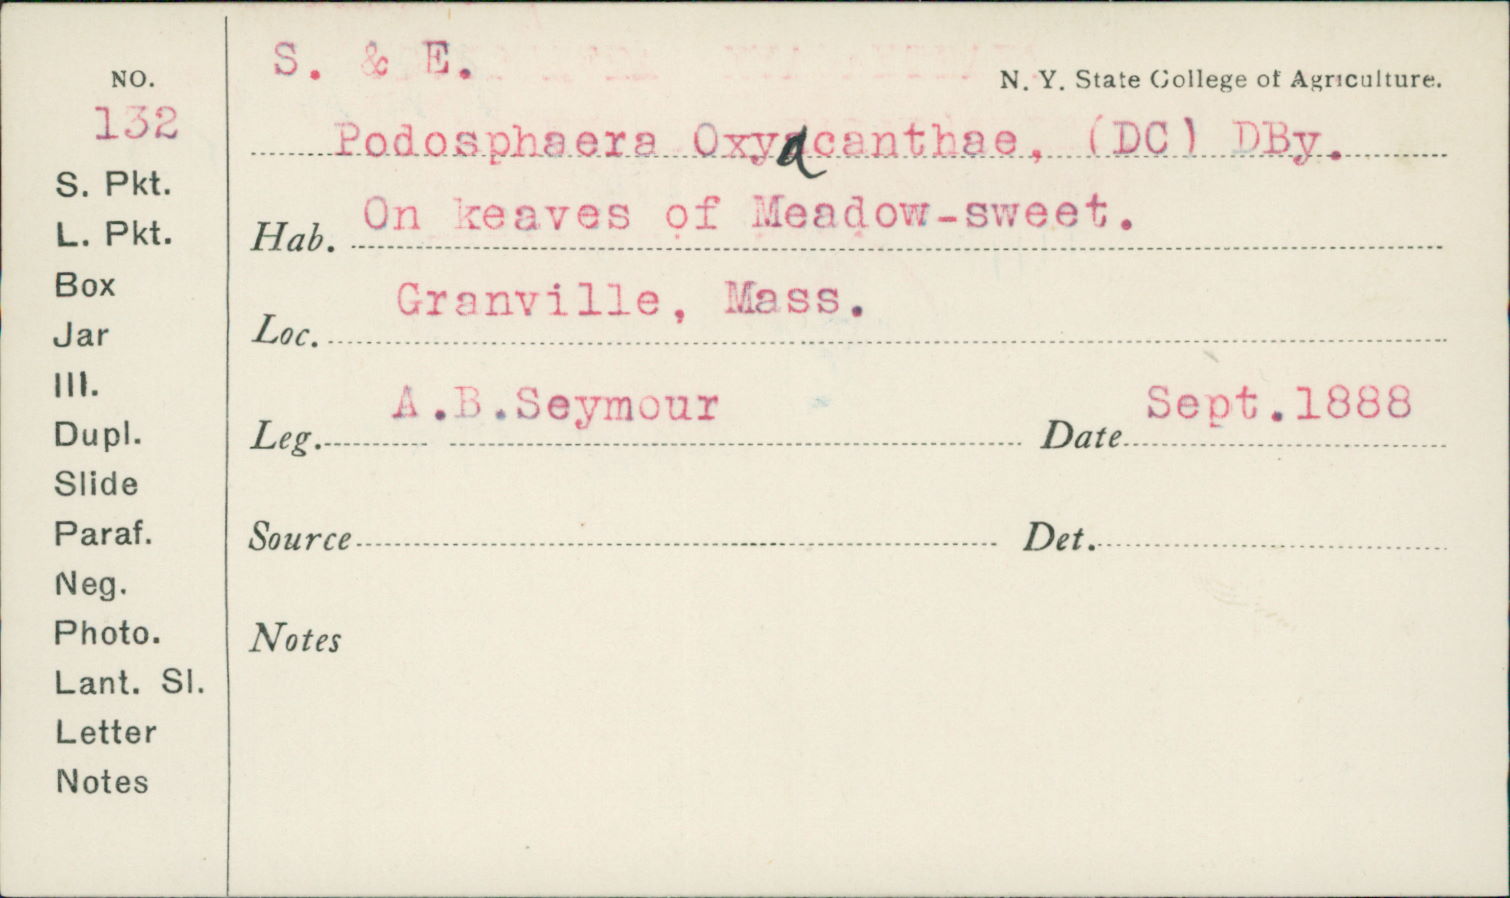 S. & E.
N. Y. State College of Agriculture.
NO.
132
Podosphaera Oxyacanthae, (DC) DBy.
Hab. On keaves of Meadow-sweet.
Loc. Granville, Mass.
Leg. A.B.Seymour Date Sept.1888
Source Det.
Notes
S. Pkt.
L. Pkt.
Box
Jar
Ill.
Dupl.
Slide
Paraf.
Neg.
Photo.
Lant. Sl.
Letter
Notes